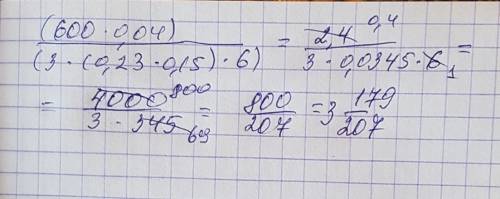 (600 · 0,04) / (3 · (0,23 · 0,15) · 6) = 2,4 0,4 / 3 · 0,0345 · 6 1 =
= 4000 800 / 3 · 345 69 = 800 / 207 = 3 179 / 207